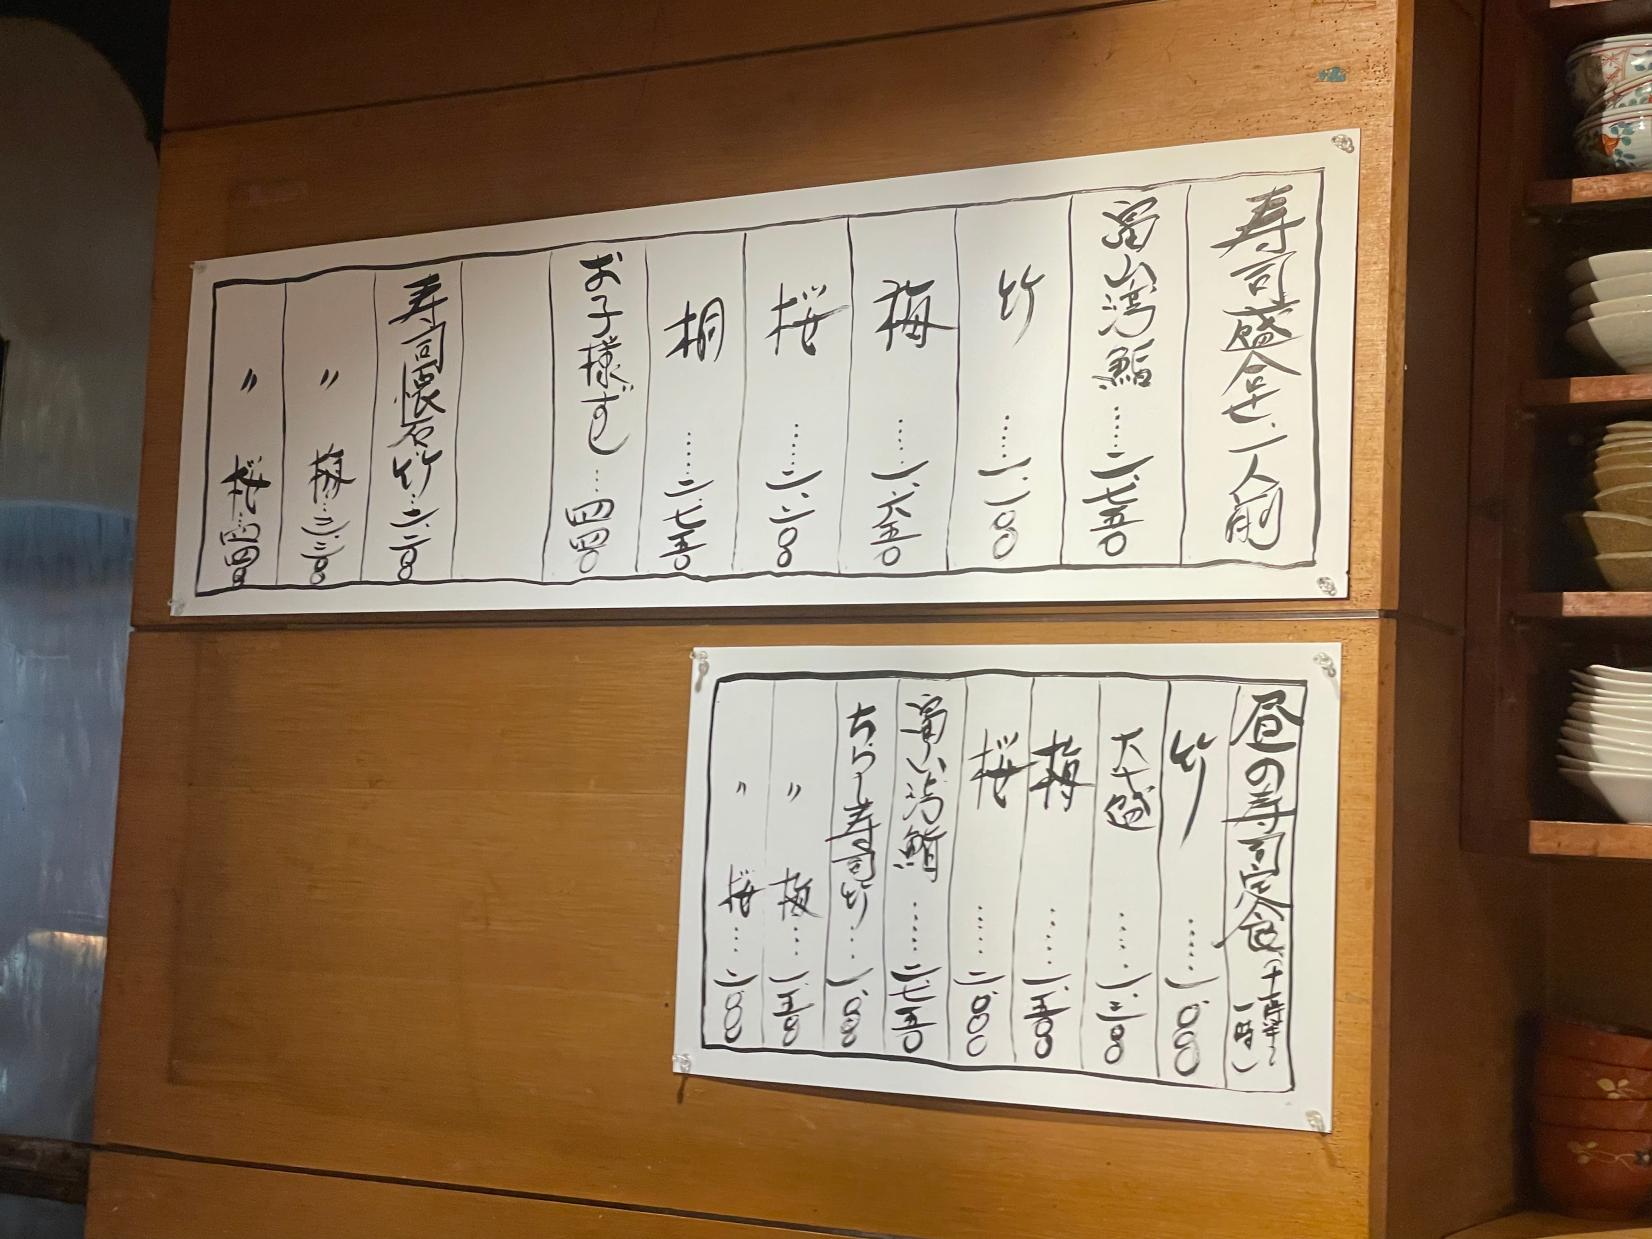 寿司盛合せ一人前
富山湾鮨……二、七五〇
竹……一、一〇〇
梅……一、六五〇
桜……二、二〇〇
桐……二、七五〇
お子様ずし…四四〇
寿司懐石竹…二、二〇〇
〃 梅…三、三〇〇
〃 桜…四、四〇〇
昼の寿司定食(十一時半〜一時)
竹……一、〇〇〇
大盛……一、三〇〇
梅……一、五〇〇
桜……二、〇〇〇
富山湾鮨……二、七五〇
ちらし寿司竹…一、〇〇〇
〃 梅…一、五〇〇
〃 桜…二、〇〇〇